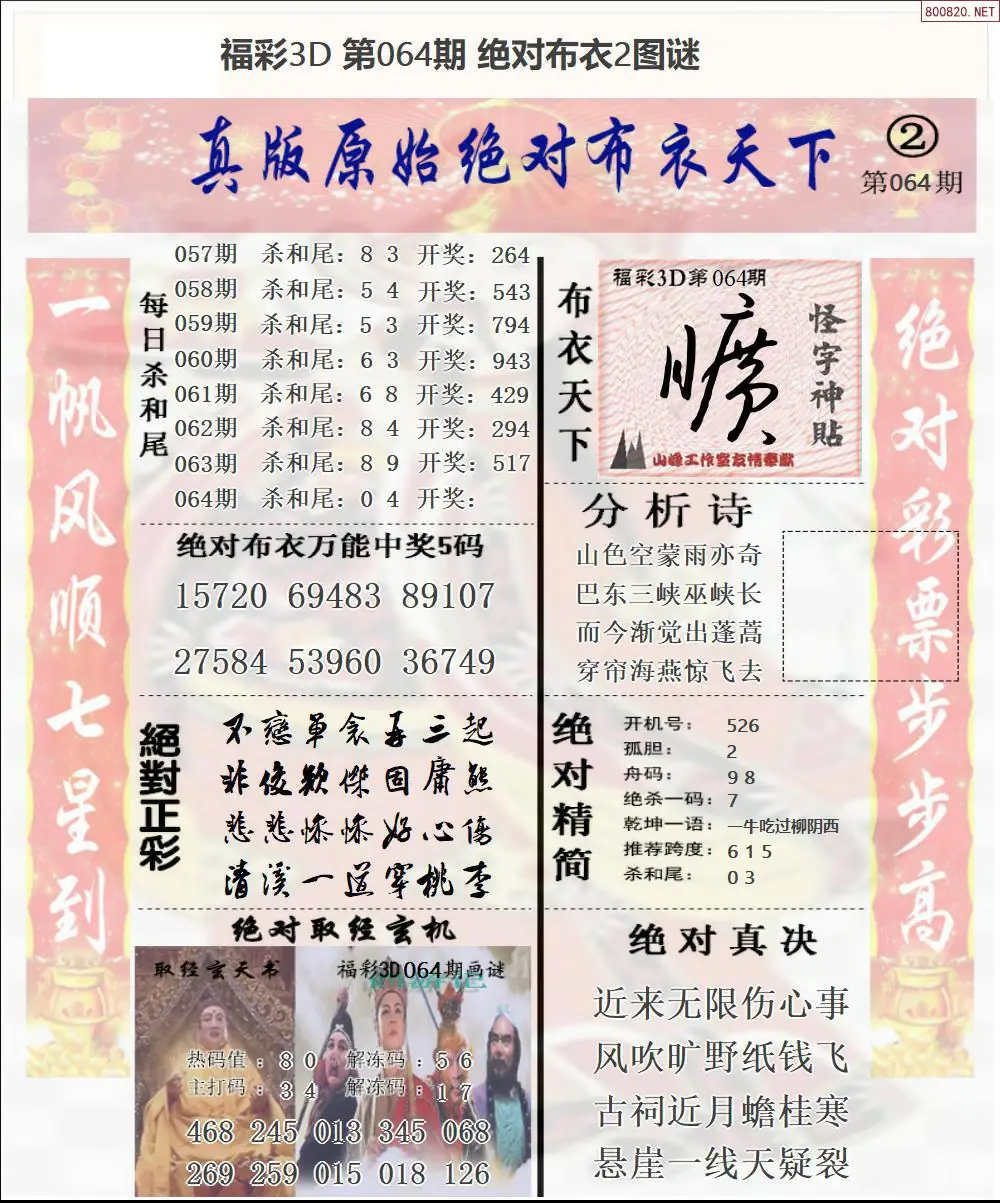 800820.NET
福彩3D 第064期 绝对布衣2图谜
真版原始绝对布衣天下
②
第064期
一帆风顺七星到
每日杀和尾
057期 杀和尾：8 3 开奖：264
058期 杀和尾：5 4 开奖：543
059期 杀和尾：5 3 开奖：794
060期 杀和尾：6 3 开奖：943
061期 杀和尾：6 8 开奖：429
062期 杀和尾：8 4 开奖：294
063期 杀和尾：8 9 开奖：517
064期 杀和尾：0 4 开奖：
绝对布衣万能中奖5码
15720 69483 89107
27584 53960 36749
絕對正彩
不戀單衾再三起
非俊欺傑固庸熊
悲悲慽慽好心傷
清溪一道穿桃李
绝对取经玄机
取经玄天书
福彩3D064期画谜
热码值：8 0 解冻码：5 6
主打码：3 4 解冻码：1 7
468 245 013 345 068
269 259 015 018 126
布衣天下
福彩3D第064期
曠
怪字神貼
山峰工作室友情奉献
分析诗
山色空蒙雨亦奇
巴东三峡巫峡长
而今渐觉出蓬蒿
穿帘海燕惊飞去
绝对精简
开机号： 526
孤胆： 2
舟码： 9 8
绝杀一码：7
乾坤一语：一牛吃过柳阴西
推荐跨度：6 1 5
杀和尾： 0 3
绝对真决
近来无限伤心事
风吹旷野纸钱飞
古祠近月蟾桂寒
悬崖一线天疑裂
绝对彩票步步高